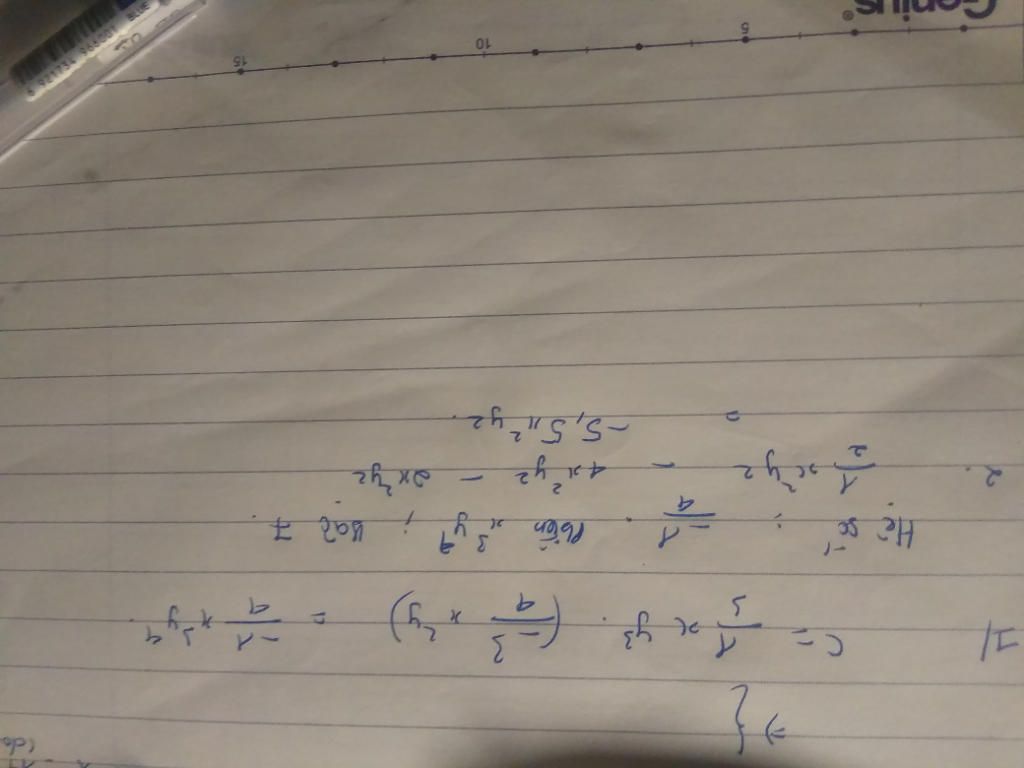 (do
=> {
1/ C = 1/3 x y³ . (-3/4 x²y) = -1/4 x³y⁴.
Hệ số : -1/4 . Phần x³y⁴ ; Bậc 7.
2. 1/2 x²y² - 4x²y² - 2x²y²
= -5,5x²y².
5 10 15
Genius®
BLUE